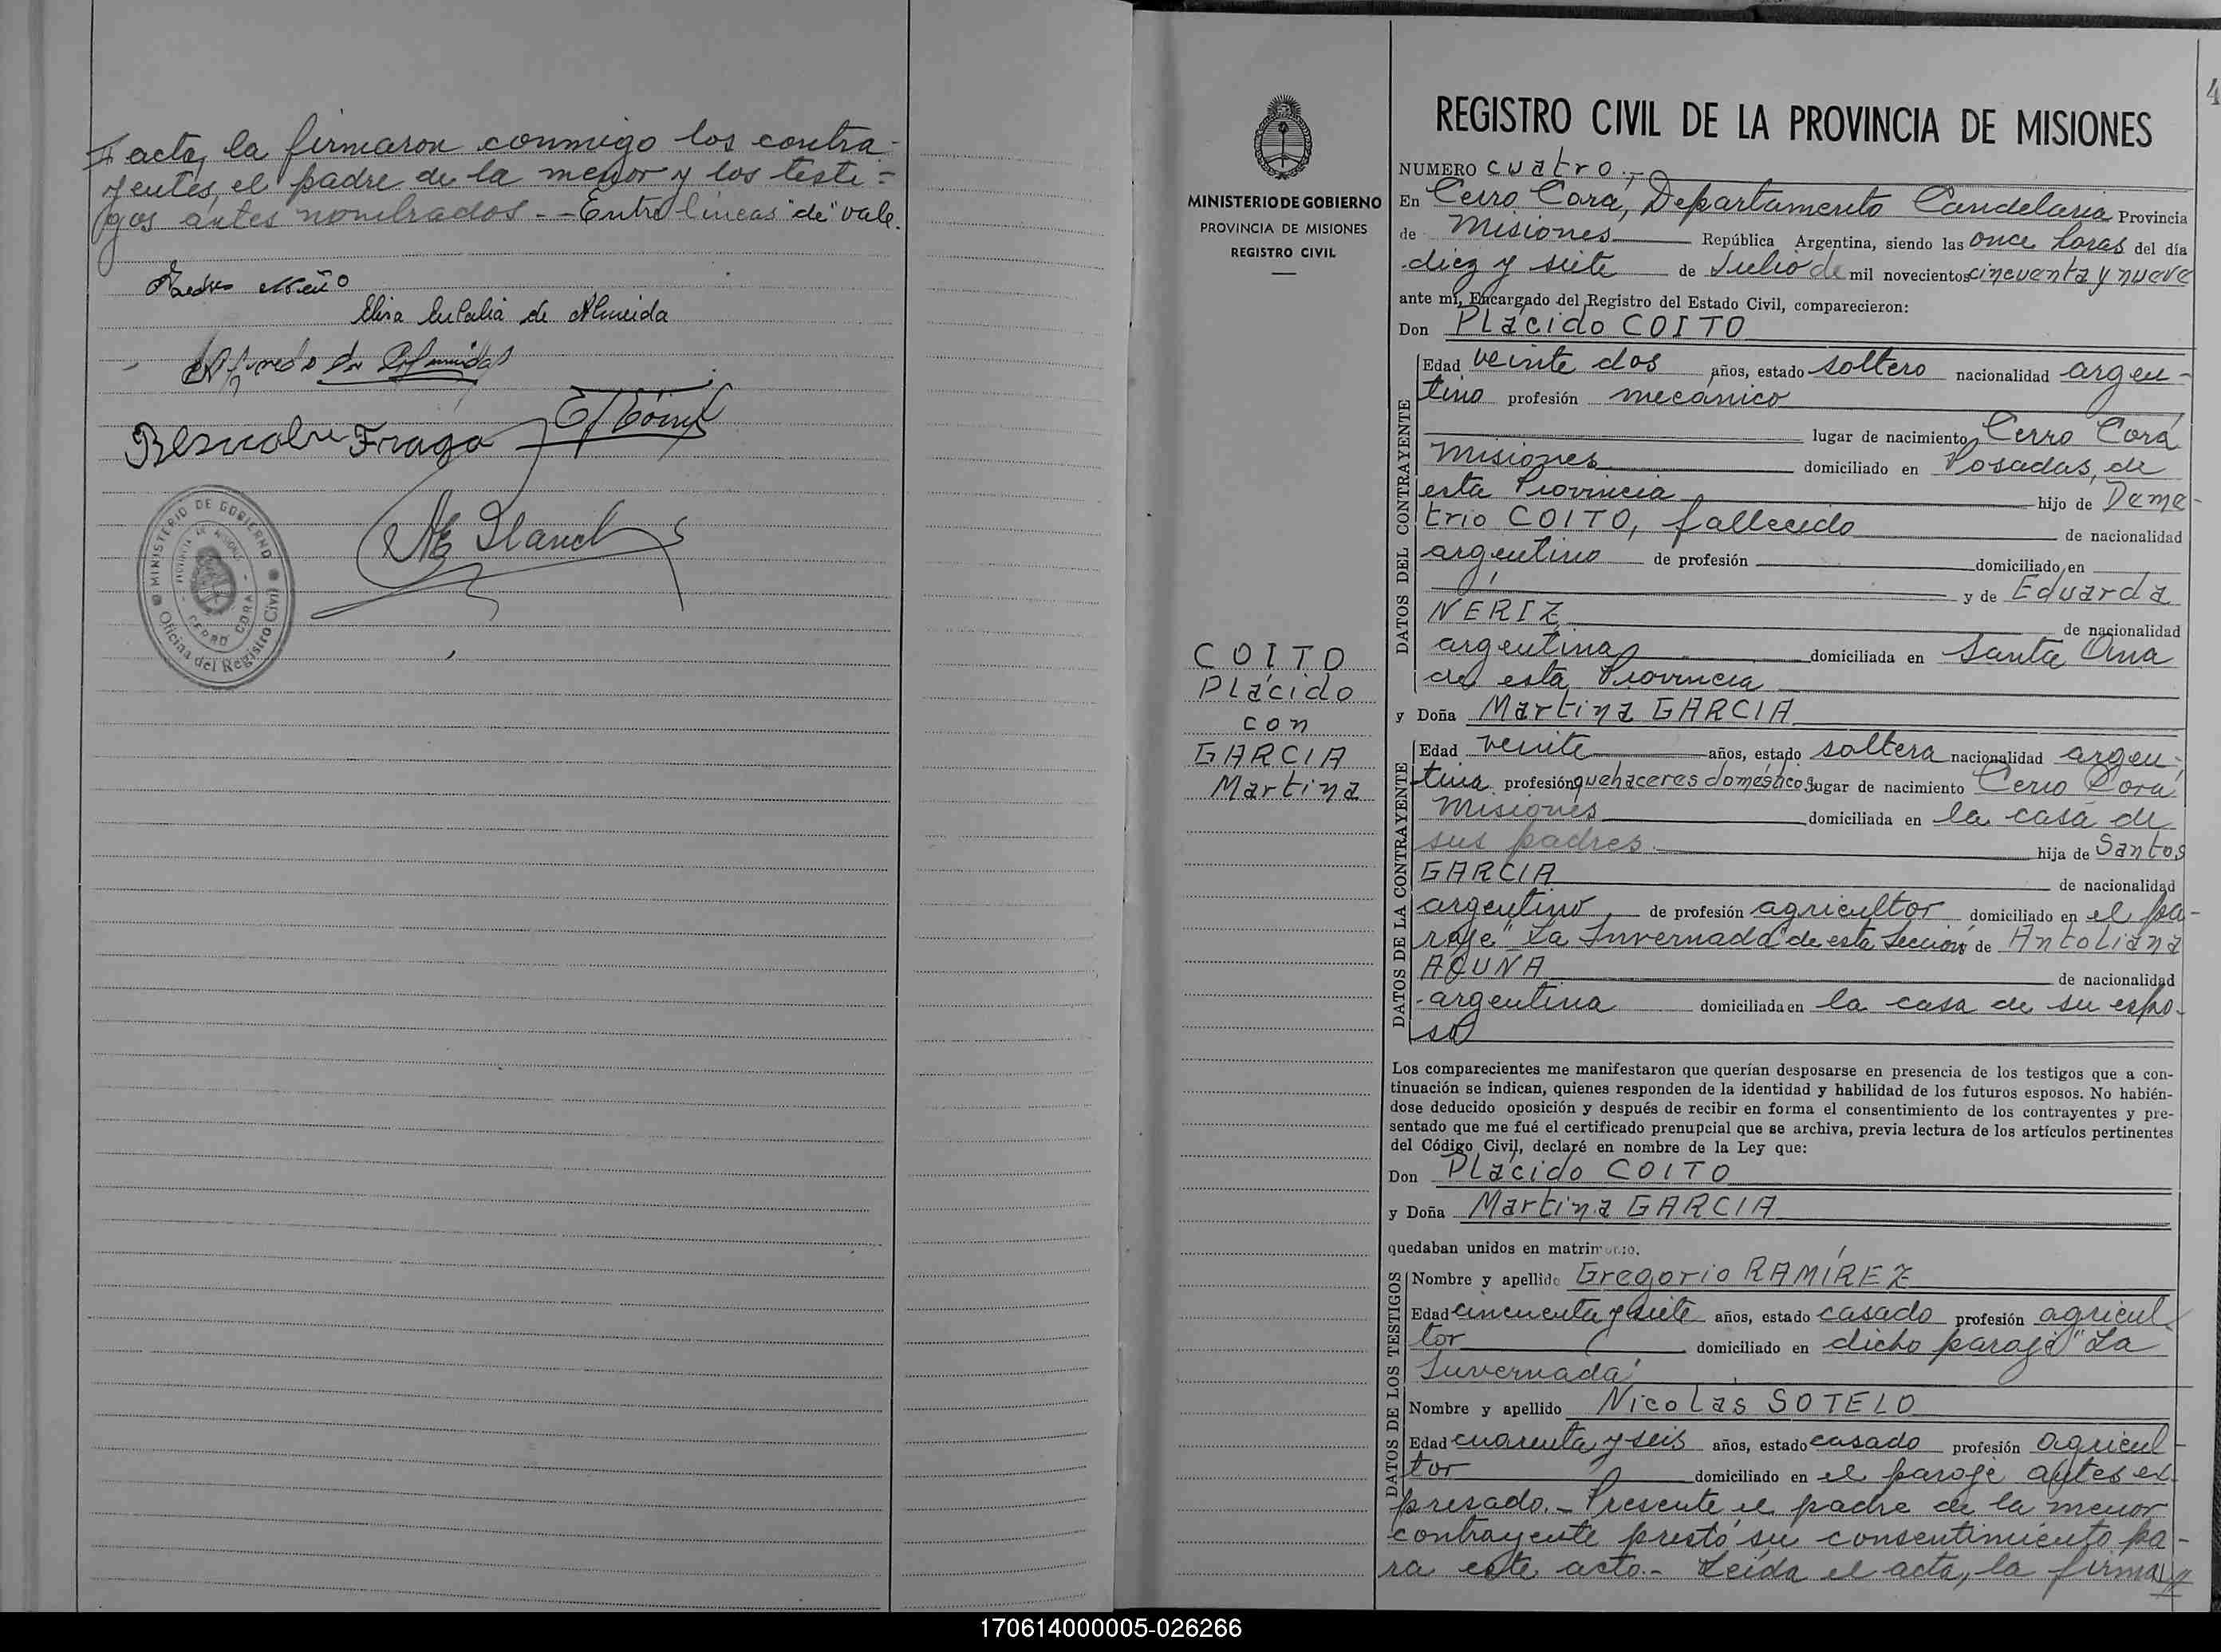 acta, la firmaron conmigo los contra-
yentes, el padre de la menor y los testi=
gos antes nombrados.--Entre lineas "de" vale.
Elisa Eulalia de Almeida
Bernabe Fraga
MINISTERIO DE GOBIERNO
PROVINCIA DE MISIONES
CERRO CORA
Oficina del Registro Civil
4
MINISTERIO DE GOBIERNO
PROVINCIA DE MISIONES
REGISTRO CIVIL
COITO
Plácido
con
GARCIA
Martina
REGISTRO CIVIL DE LA PROVINCIA DE MISIONES
NUMERO cuatro.-
En Cerro Corá, Departamento Candelaria Provincia
de Misiones República Argentina, siendo las once horas del día
diez y siete de Julio de mil novecientos cincuenta y nueve
ante mí, Encargado del Registro del Estado Civil, comparecieron:
Don Plácido COITO
DATOS DEL CONTRAYENTE
Edad veinte dos años, estado soltero nacionalidad argen-
tino profesión mecánico
lugar de nacimiento Cerro Corá
Misiones domiciliado en Posadas, de
esta Provincia hijo de Deme-
trio COITO, fallecido de nacionalidad
argentino de profesión domiciliado en
y de Eduarda
NERIZ de nacionalidad
argentina domiciliada en Santa Ana
de esta Provincia
y Doña Martina GARCIA
DATOS DE LA CONTRAYENTE
Edad veinte años, estado soltera nacionalidad argen-
tina profesión quehaceres domésticos lugar de nacimiento Cerro Corá
Misiones domiciliada en la casa de
sus padres hija de Santos
GARCIA de nacionalidad
argentino, de profesión agricultor domiciliado en el pa-
raje "La Invernada" de esta Sección y de Antoliana
ACUNA de nacionalidad
argentina domiciliada en la casa de su espo-
so
Los comparecientes me manifestaron que querían desposarse en presencia de los testigos que a con-
tinuación se indican, quienes responden de la identidad y habilidad de los futuros esposos. No habién-
dose deducido oposición y después de recibir en forma el consentimiento de los contrayentes y pre-
sentado que me fué el certificado prenupcial que se archiva, previa lectura de los artículos pertinentes
del Código Civil, declaré en nombre de la Ley que:
Don Plácido COITO
y Doña Martina GARCIA
quedaban unidos en matrimonio.
DATOS DE LOS TESTIGOS
Nombre y apellido Gregorio RAMÍREZ
Edad cincuenta y siete años, estado casado profesión agricul
tor domiciliado en dicho paraje "La
Invernada"
Nombre y apellido Nicolás SOTELO
Edad cuarenta y seis años, estado casado profesión agricul-
tor domiciliado en el paraje antes ex
presado.- Presente el padre de la menor
contrayente prestó su consentimiento pa-
ra este acto.- Leída el acta, la firma
170614000005-026266